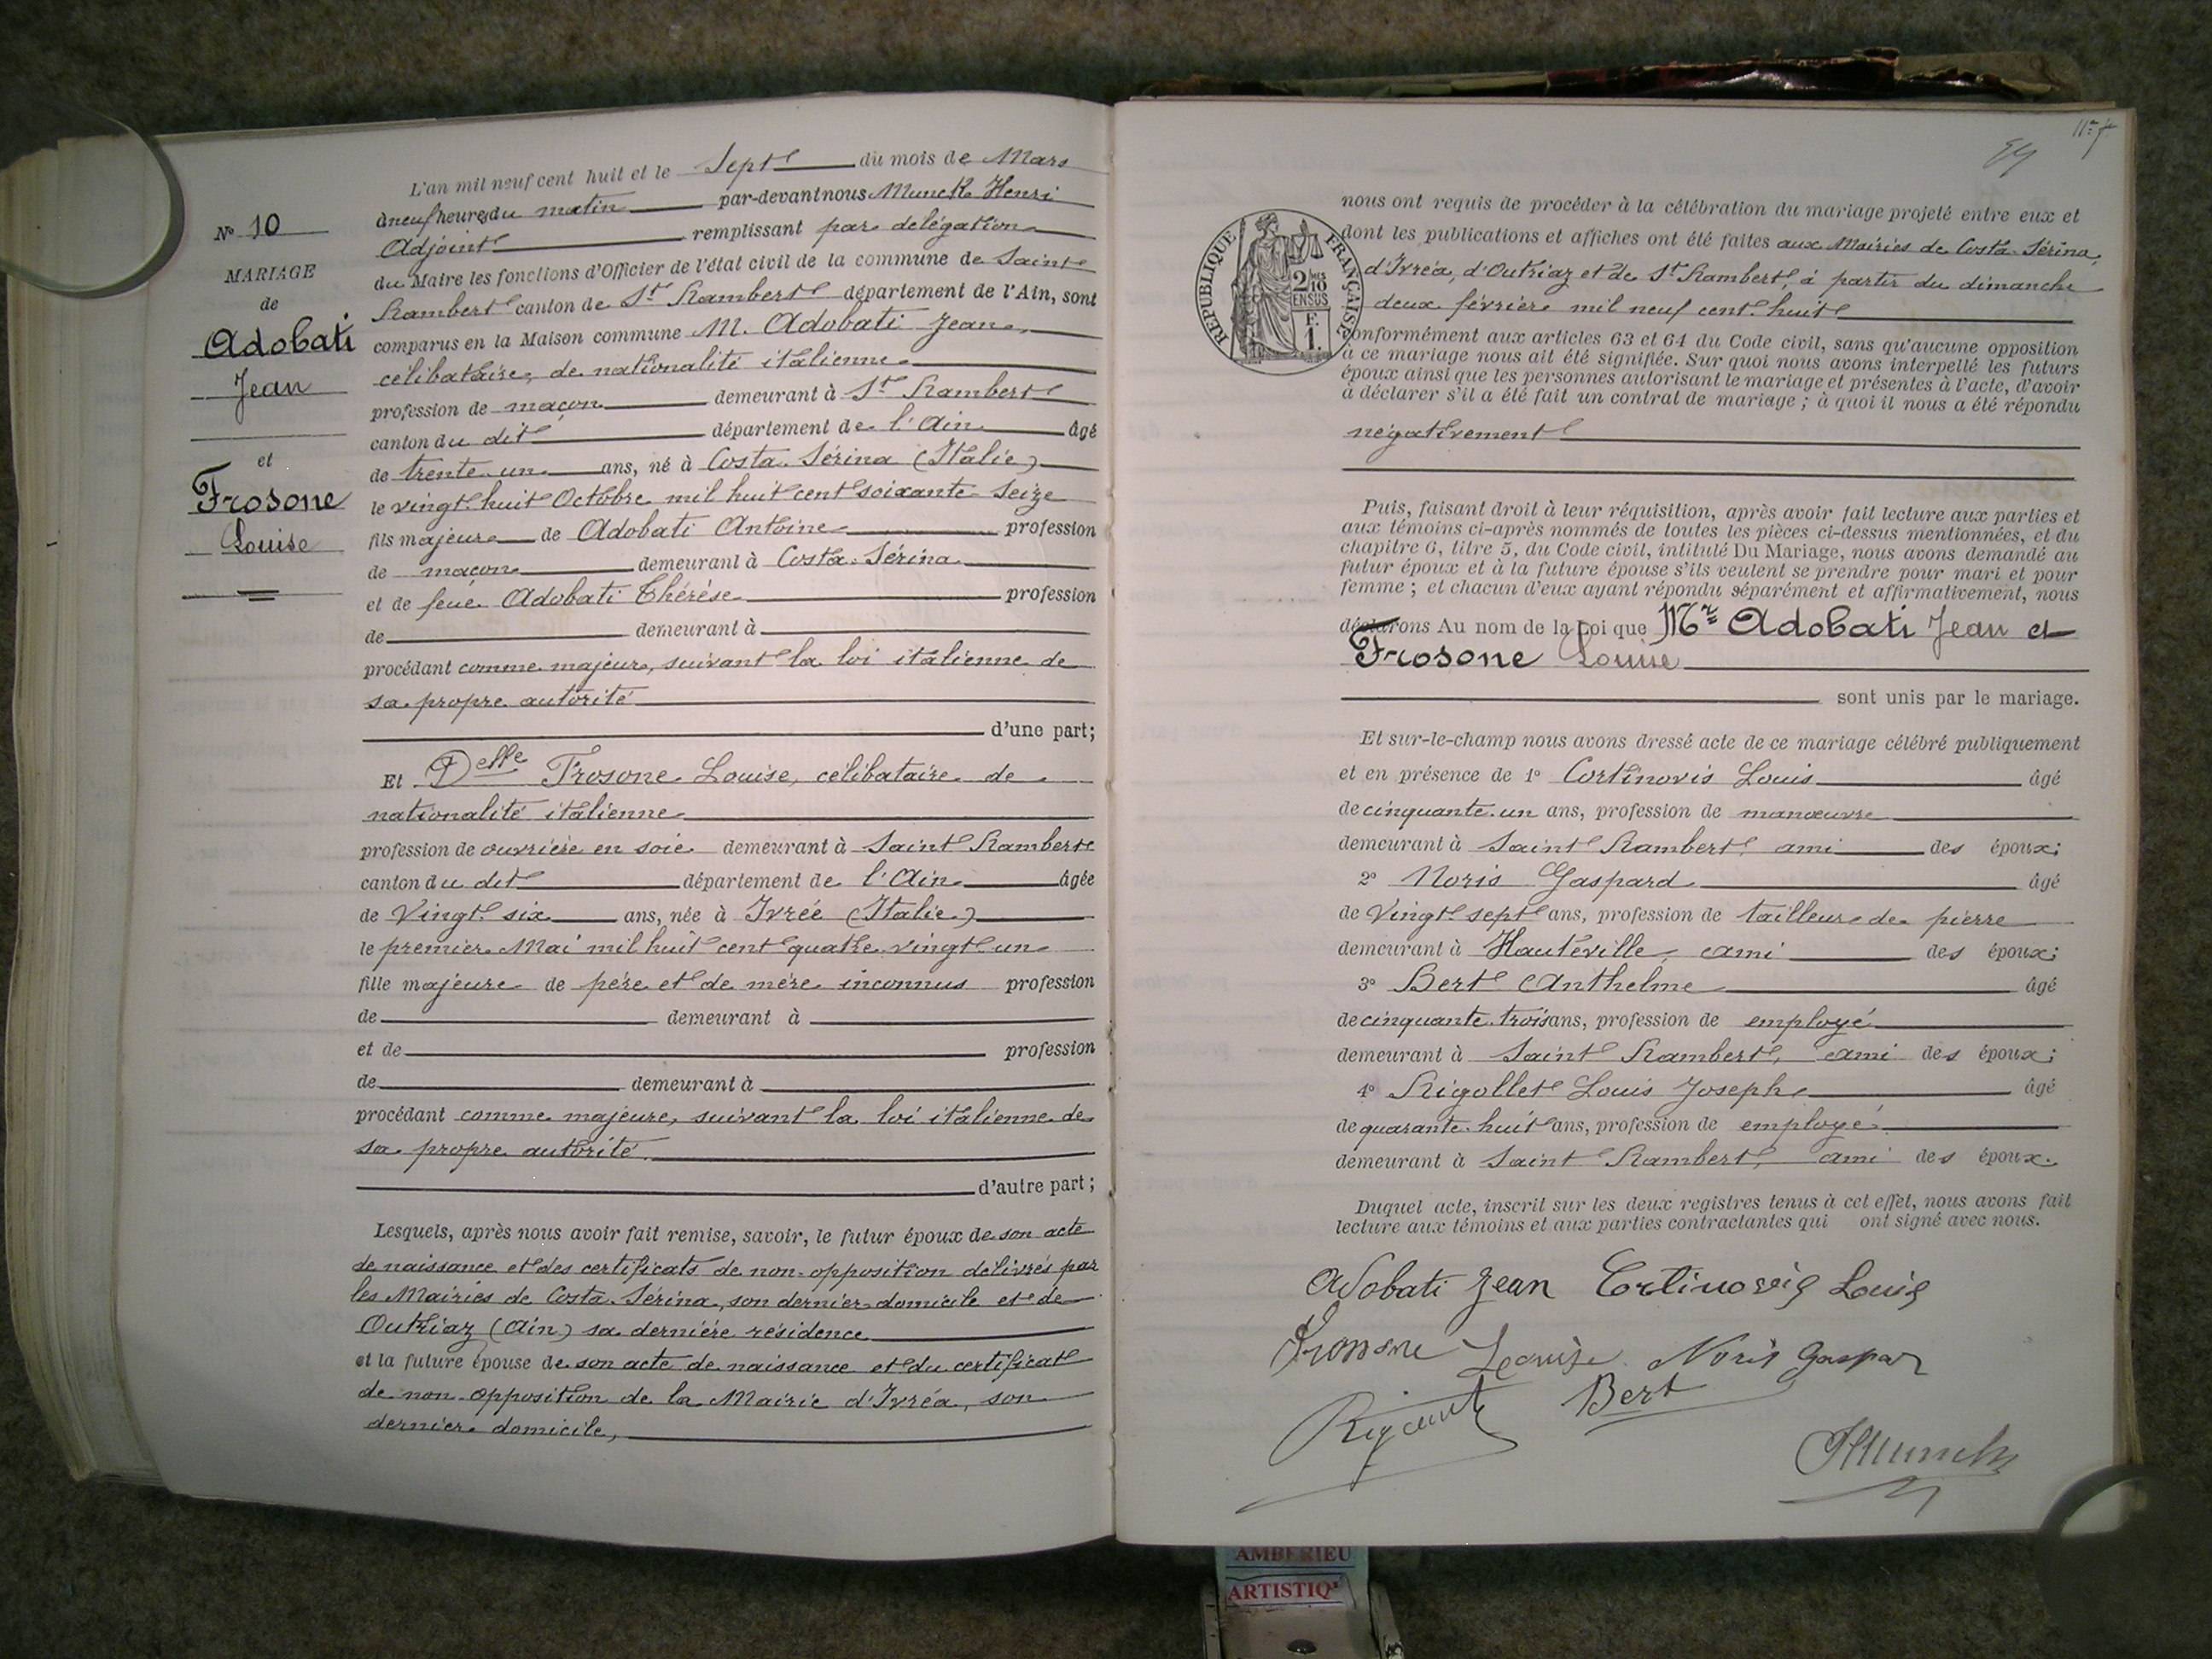 Nº 10
MARIAGE
de
Adobati
Jean
et
Frosone
Louise
L'an mil neuf cent huit et le Sept du mois de Mars
à neuf heures du matin par-devant nous Munck Henri
Adjoint remplissant par délégation
du Maire les fonctions d'Officier de l'état civil de la commune de Saint
Rambert canton de St Rambert département de l'Ain, sont
comparus en la Maison commune M. Adobati Jean,
célibataire, de nationalité italienne
profession de maçon demeurant à St Rambert
canton du dit département de l'Ain âgé
de trente un ans, né à Costa Sérina (Italie)
le vingt huit Octobre mil huit cent soixante Seize
fils majeur de Adobati Antoine profession
de maçon demeurant à Costa Sérina
et de feue Adobati Thérèse profession
de demeurant à
procédant comme majeur, suivant la loi italienne de
sa propre autorité
d'une part;
Et Delle Frosone Louise, célibataire de
nationalité italienne
profession de ouvrière en soie demeurant à Saint Rambert
canton du dit département de l'Ain âgée
de Vingt six ans, née à Ivrée (Italie)
le premier Mai mil huit cent quatre vingt un
fille majeure de père et de mère inconnus profession
de demeurant à
et de profession
de demeurant à
procédant comme majeure, suivant la loi italienne de
sa propre autorité
d'autre part;
Lesquels, après nous avoir fait remise, savoir, le futur époux de son acte
de naissance et des certificats de non-opposition délivrés par
les Mairies de Costa-Sérina, son dernier domicile et de
Outriaz (Ain) sa dernière résidence
et la future épouse de son acte de naissance et du certificat
de non opposition de la Mairie d'Ivréa, son
dernier domicile,
REPUBLIQUE FRANÇAISE
2/10
EN SUS
F.
1.
nous ont requis de procéder à la célébration du mariage projeté entre eux et
dont les publications et affiches ont été faites aux Mairies de Costa-Sérina,
d'Ivréa, d'Outriaz et de St Rambert, à partir du dimanche
deux février mil neuf cent huit
conformément aux articles 63 et 64 du Code civil, sans qu'aucune opposition
à ce mariage nous ait été signifiée. Sur quoi nous avons interpellé les futurs
époux ainsi que les personnes autorisant le mariage et présentes à l'acte, d'avoir
à déclarer s'il a été fait un contrat de mariage; à quoi il nous a été répondu
négativement
Puis, faisant droit à leur réquisition, après avoir fait lecture aux parties et
aux témoins ci-après nommés de toutes les pièces ci-dessus mentionnées, et du
chapitre 6, titre 5, du Code civil, intitulé Du Mariage, nous avons demandé au
futur époux et à la future épouse s'ils veulent se prendre pour mari et pour
femme; et chacun d'eux ayant répondu séparément et affirmativement, nous
déclarons Au nom de la Loi que Mr Adobati Jean et
Frosone Louise
sont unis par le mariage.
Et sur-le-champ nous avons dressé acte de ce mariage célébré publiquement
et en présence de 1º Cortinovis Louis âgé
de cinquante un ans, profession de manœuvre
demeurant à Saint Rambert, ami des époux;
2º Noris Gaspard âgé
de Vingt sept ans, profession de tailleur de pierre
demeurant à Hauteville, ami des époux;
3º Bert Anthelme âgé
de cinquante trois ans, profession de employé
demeurant à Saint Rambert, ami des époux;
4º Rigollet Louis Joseph âgé
de quarante huit ans, profession de employé
demeurant à Saint Rambert, ami des époux.
Duquel acte, inscrit sur les deux registres tenus à cet effet, nous avons fait
lecture aux témoins et aux parties contractantes qui ont signé avec nous.
Adobati Jean Cortinovis Louis
Louise Noris Gaspar
Bert
HMunck
AMBERIEU
ARTISTIQ